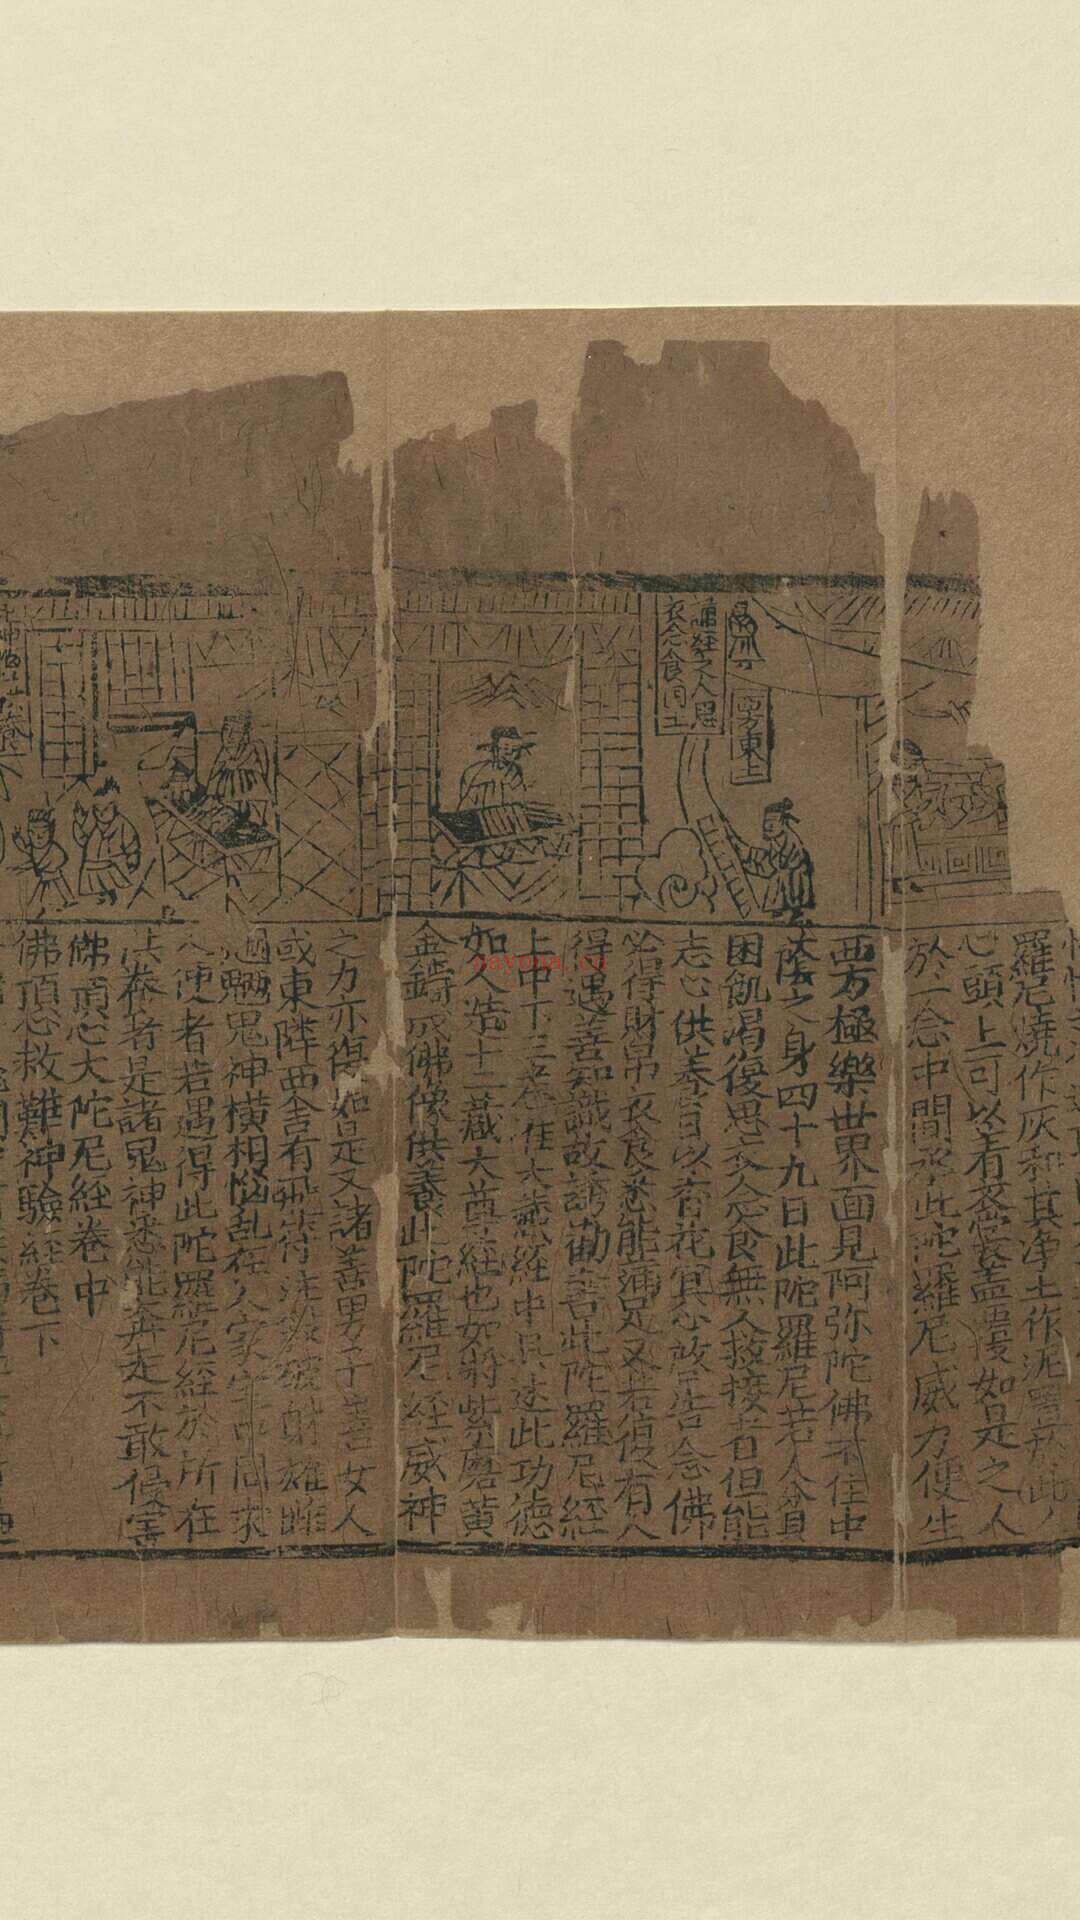 誦經之人思
衣念食思
西方東上
羅尼燒作灰和其净土作泥置於此人
心頭上可以着衣裳蓋覆如是之人
於一念中間承此陀羅尼威力便生
西方極樂世界面見阿弥陀佛不住中
陰之身四十九日此陀羅尼若人貧
困飢渴復思衣念食無人救接者但能
志心供養日以香花冥心啟告念佛
必得財帛衣食悉能滿足又若復有人
得遇善知識故誘勸書此陀羅尼經
上中下三卷准大藏經中具述此功德
如人造十二藏大尊經也如將紫磨黃
金鑄成佛像供養此陀羅尼經威神
之力亦復如是又諸善男子善女人
或東隣西舍有飛符注煞破射雄雌
魍魎鬼神橫相惱乱在人家宅中同求
人便者若遇得此陀羅尼經於所在
供養者是諸鬼神悉能奔走不敢侵害
佛頂心大陀尼經卷中
佛頂心救難神驗經卷下
sayona.cn